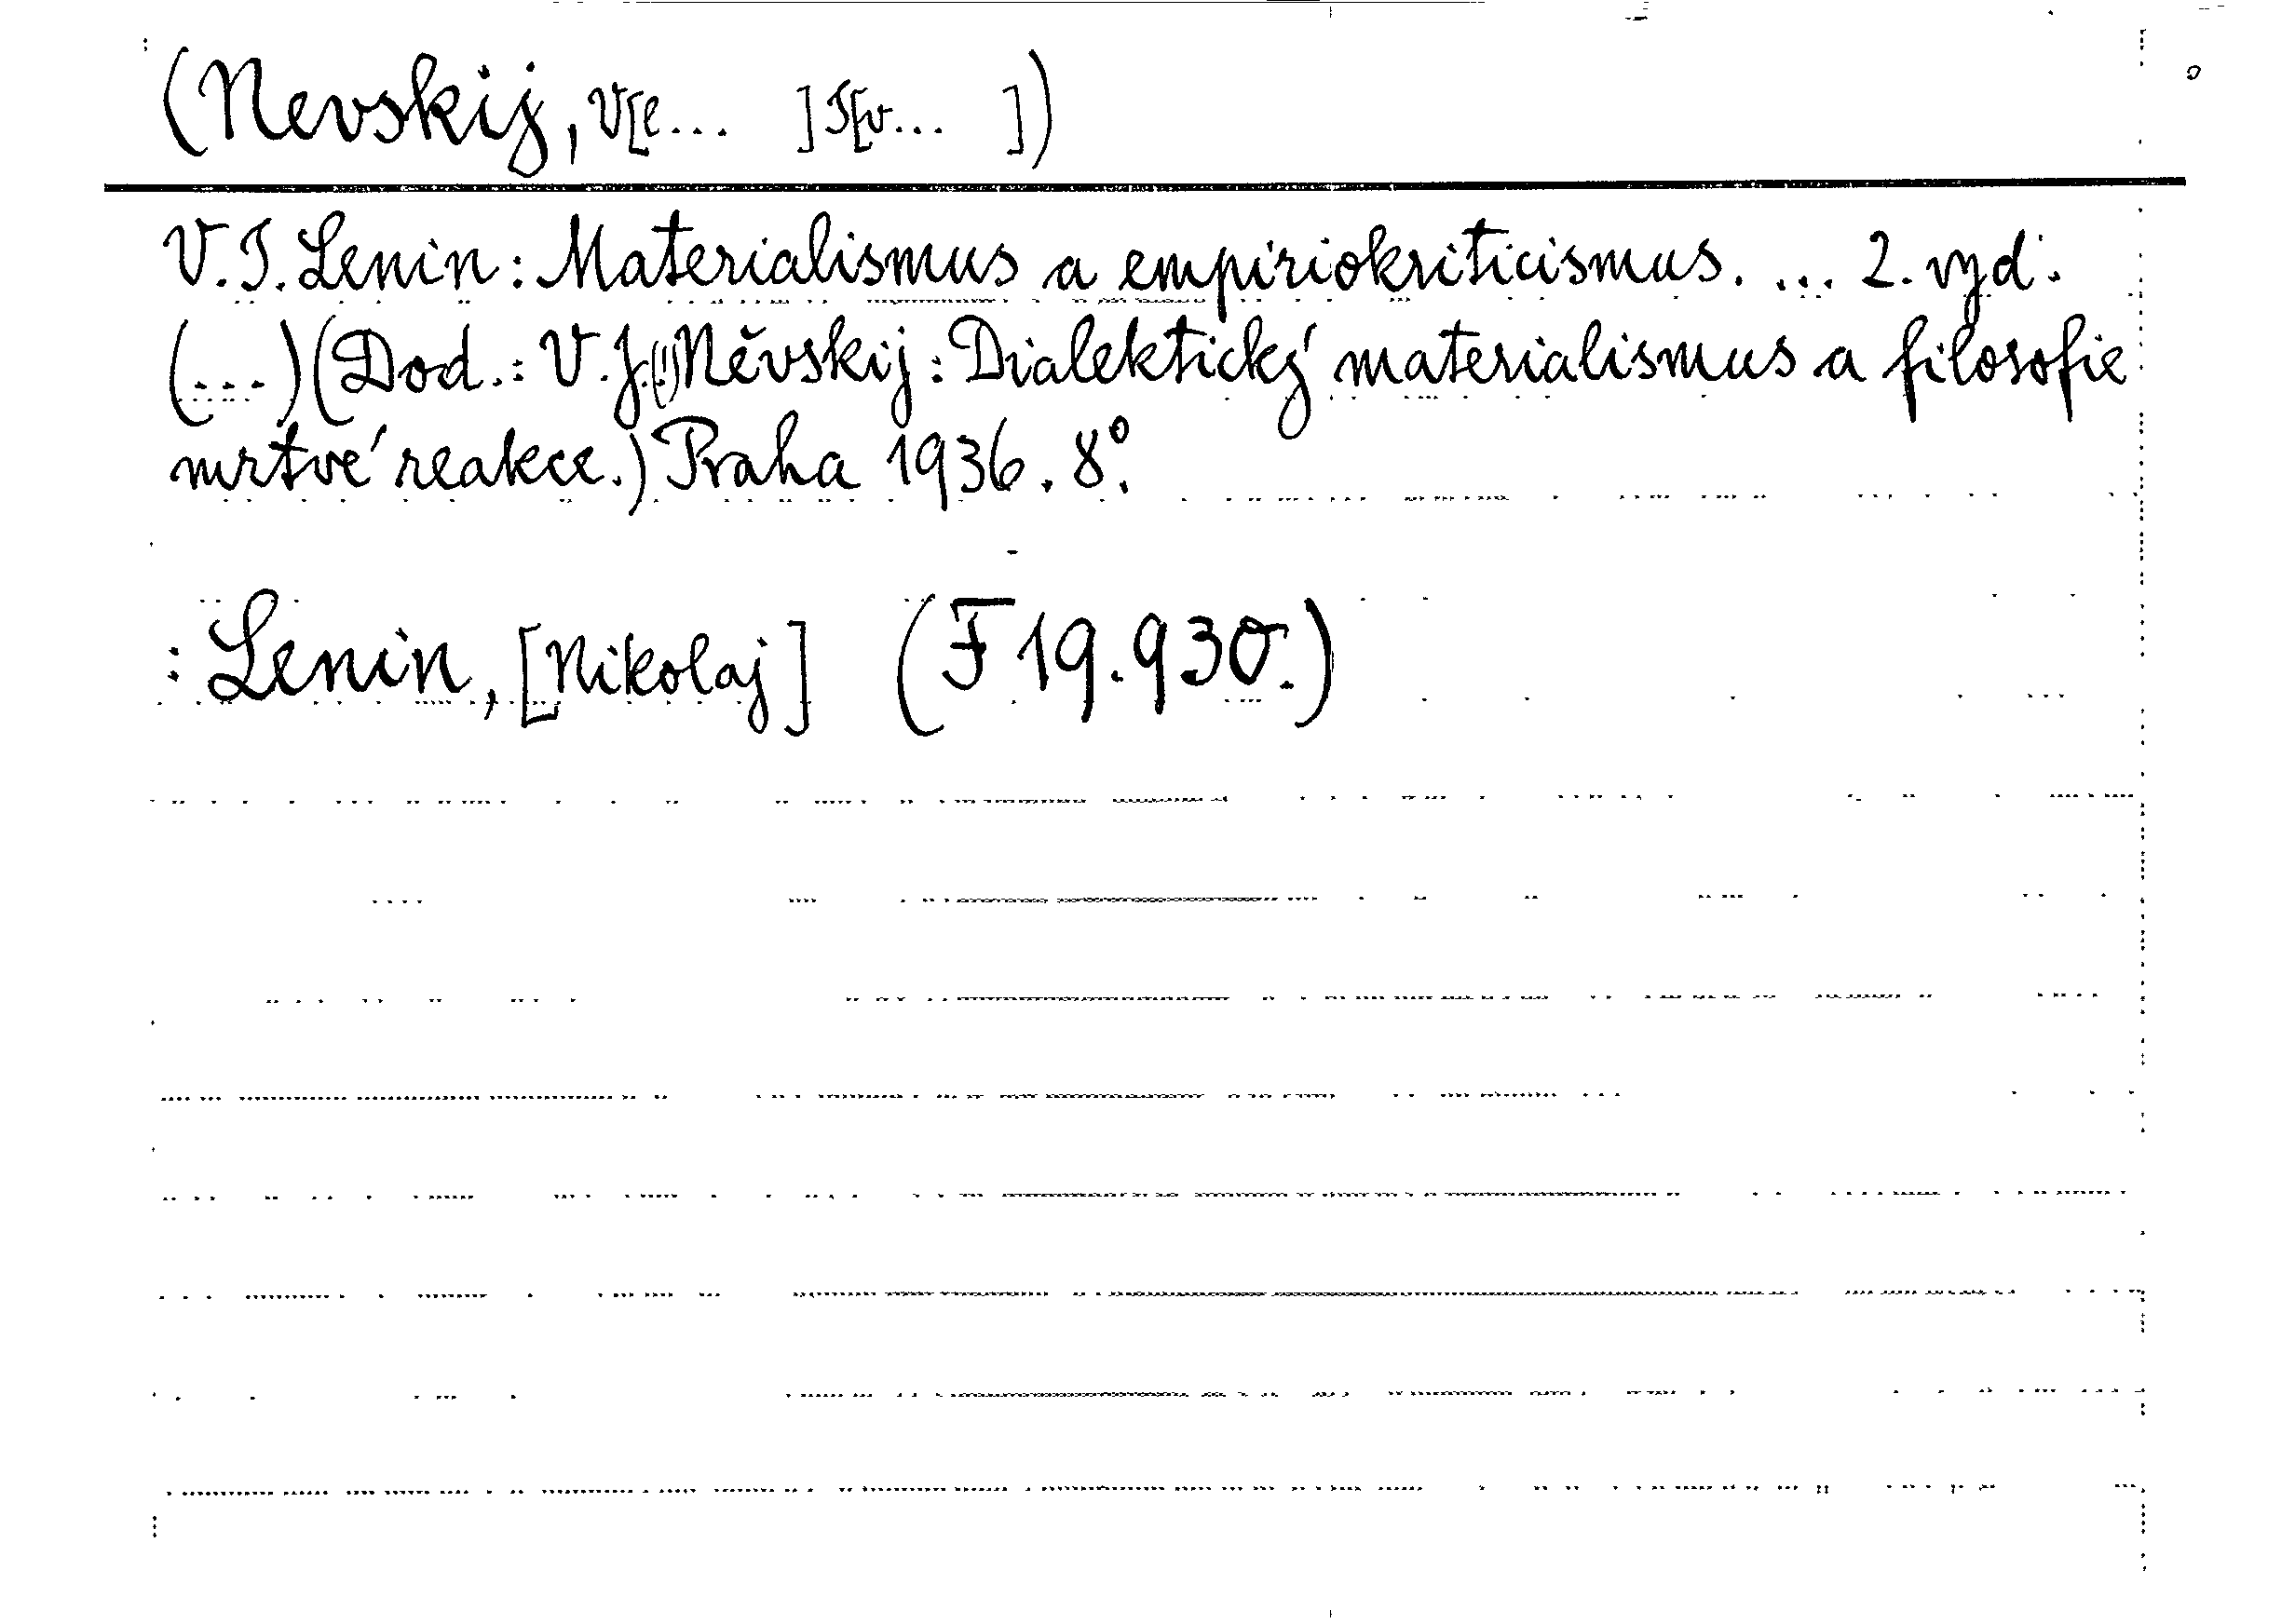 (Nevskij, V[e... ] I[v... ])
V. I. Lenin: Materialismus a empiriokriticismus. ... 2. vyd.
(...) (Dod.: V. J.(!) Něvskij: Dialektický materialismus a filosofie
mrtvé reakce.) Praha 1936. 8°.
: Lenin, [Nikolaj] (F 19.930.)